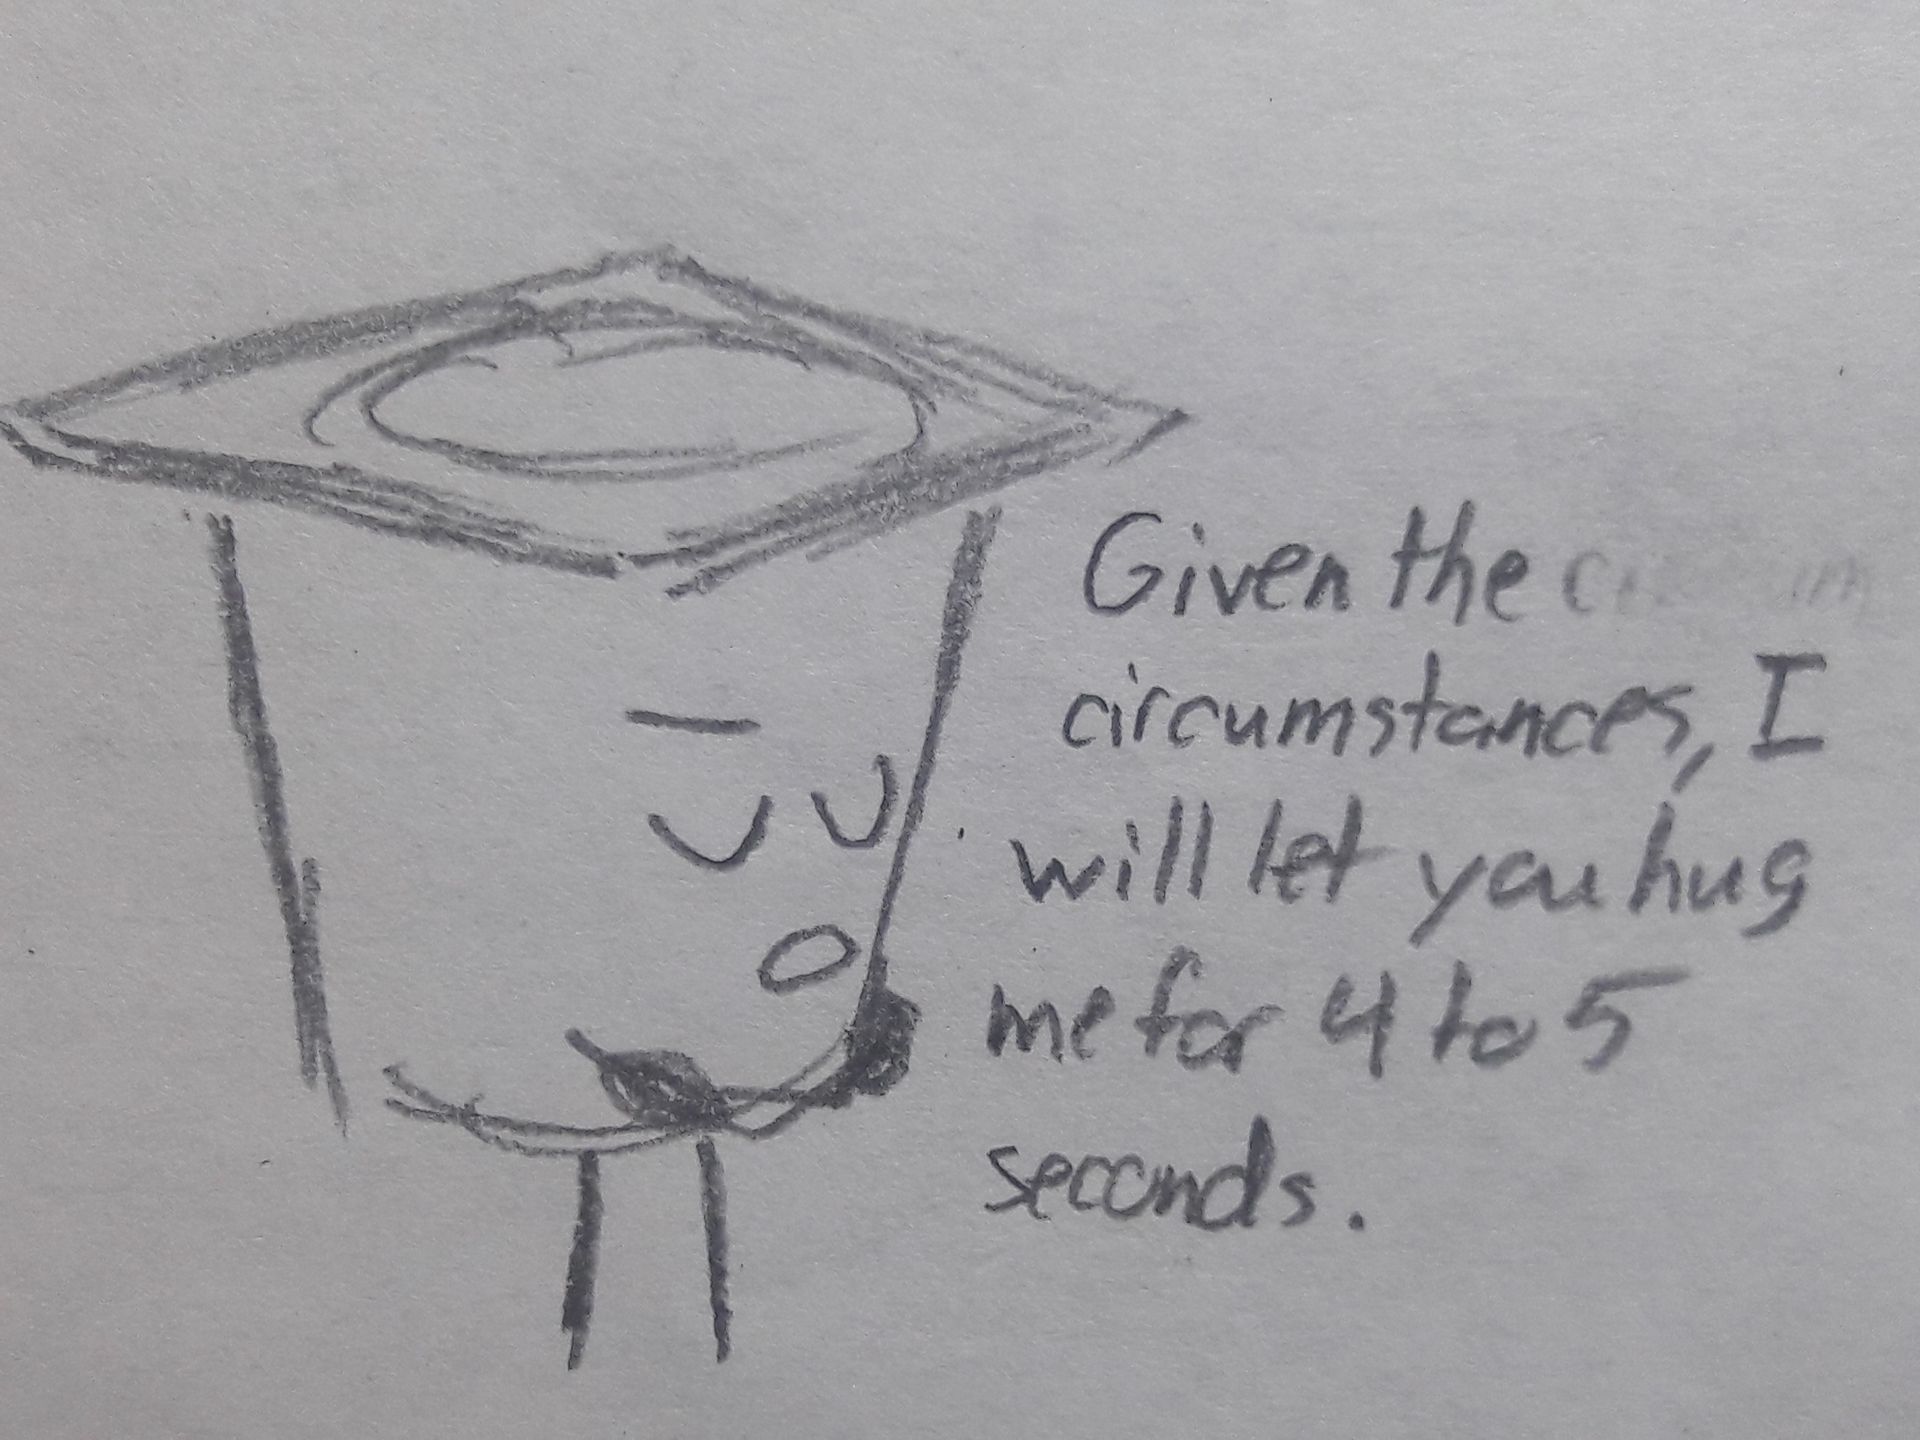 Given the
circumstances, I
will let you hug
me for 4 to 5
seconds.